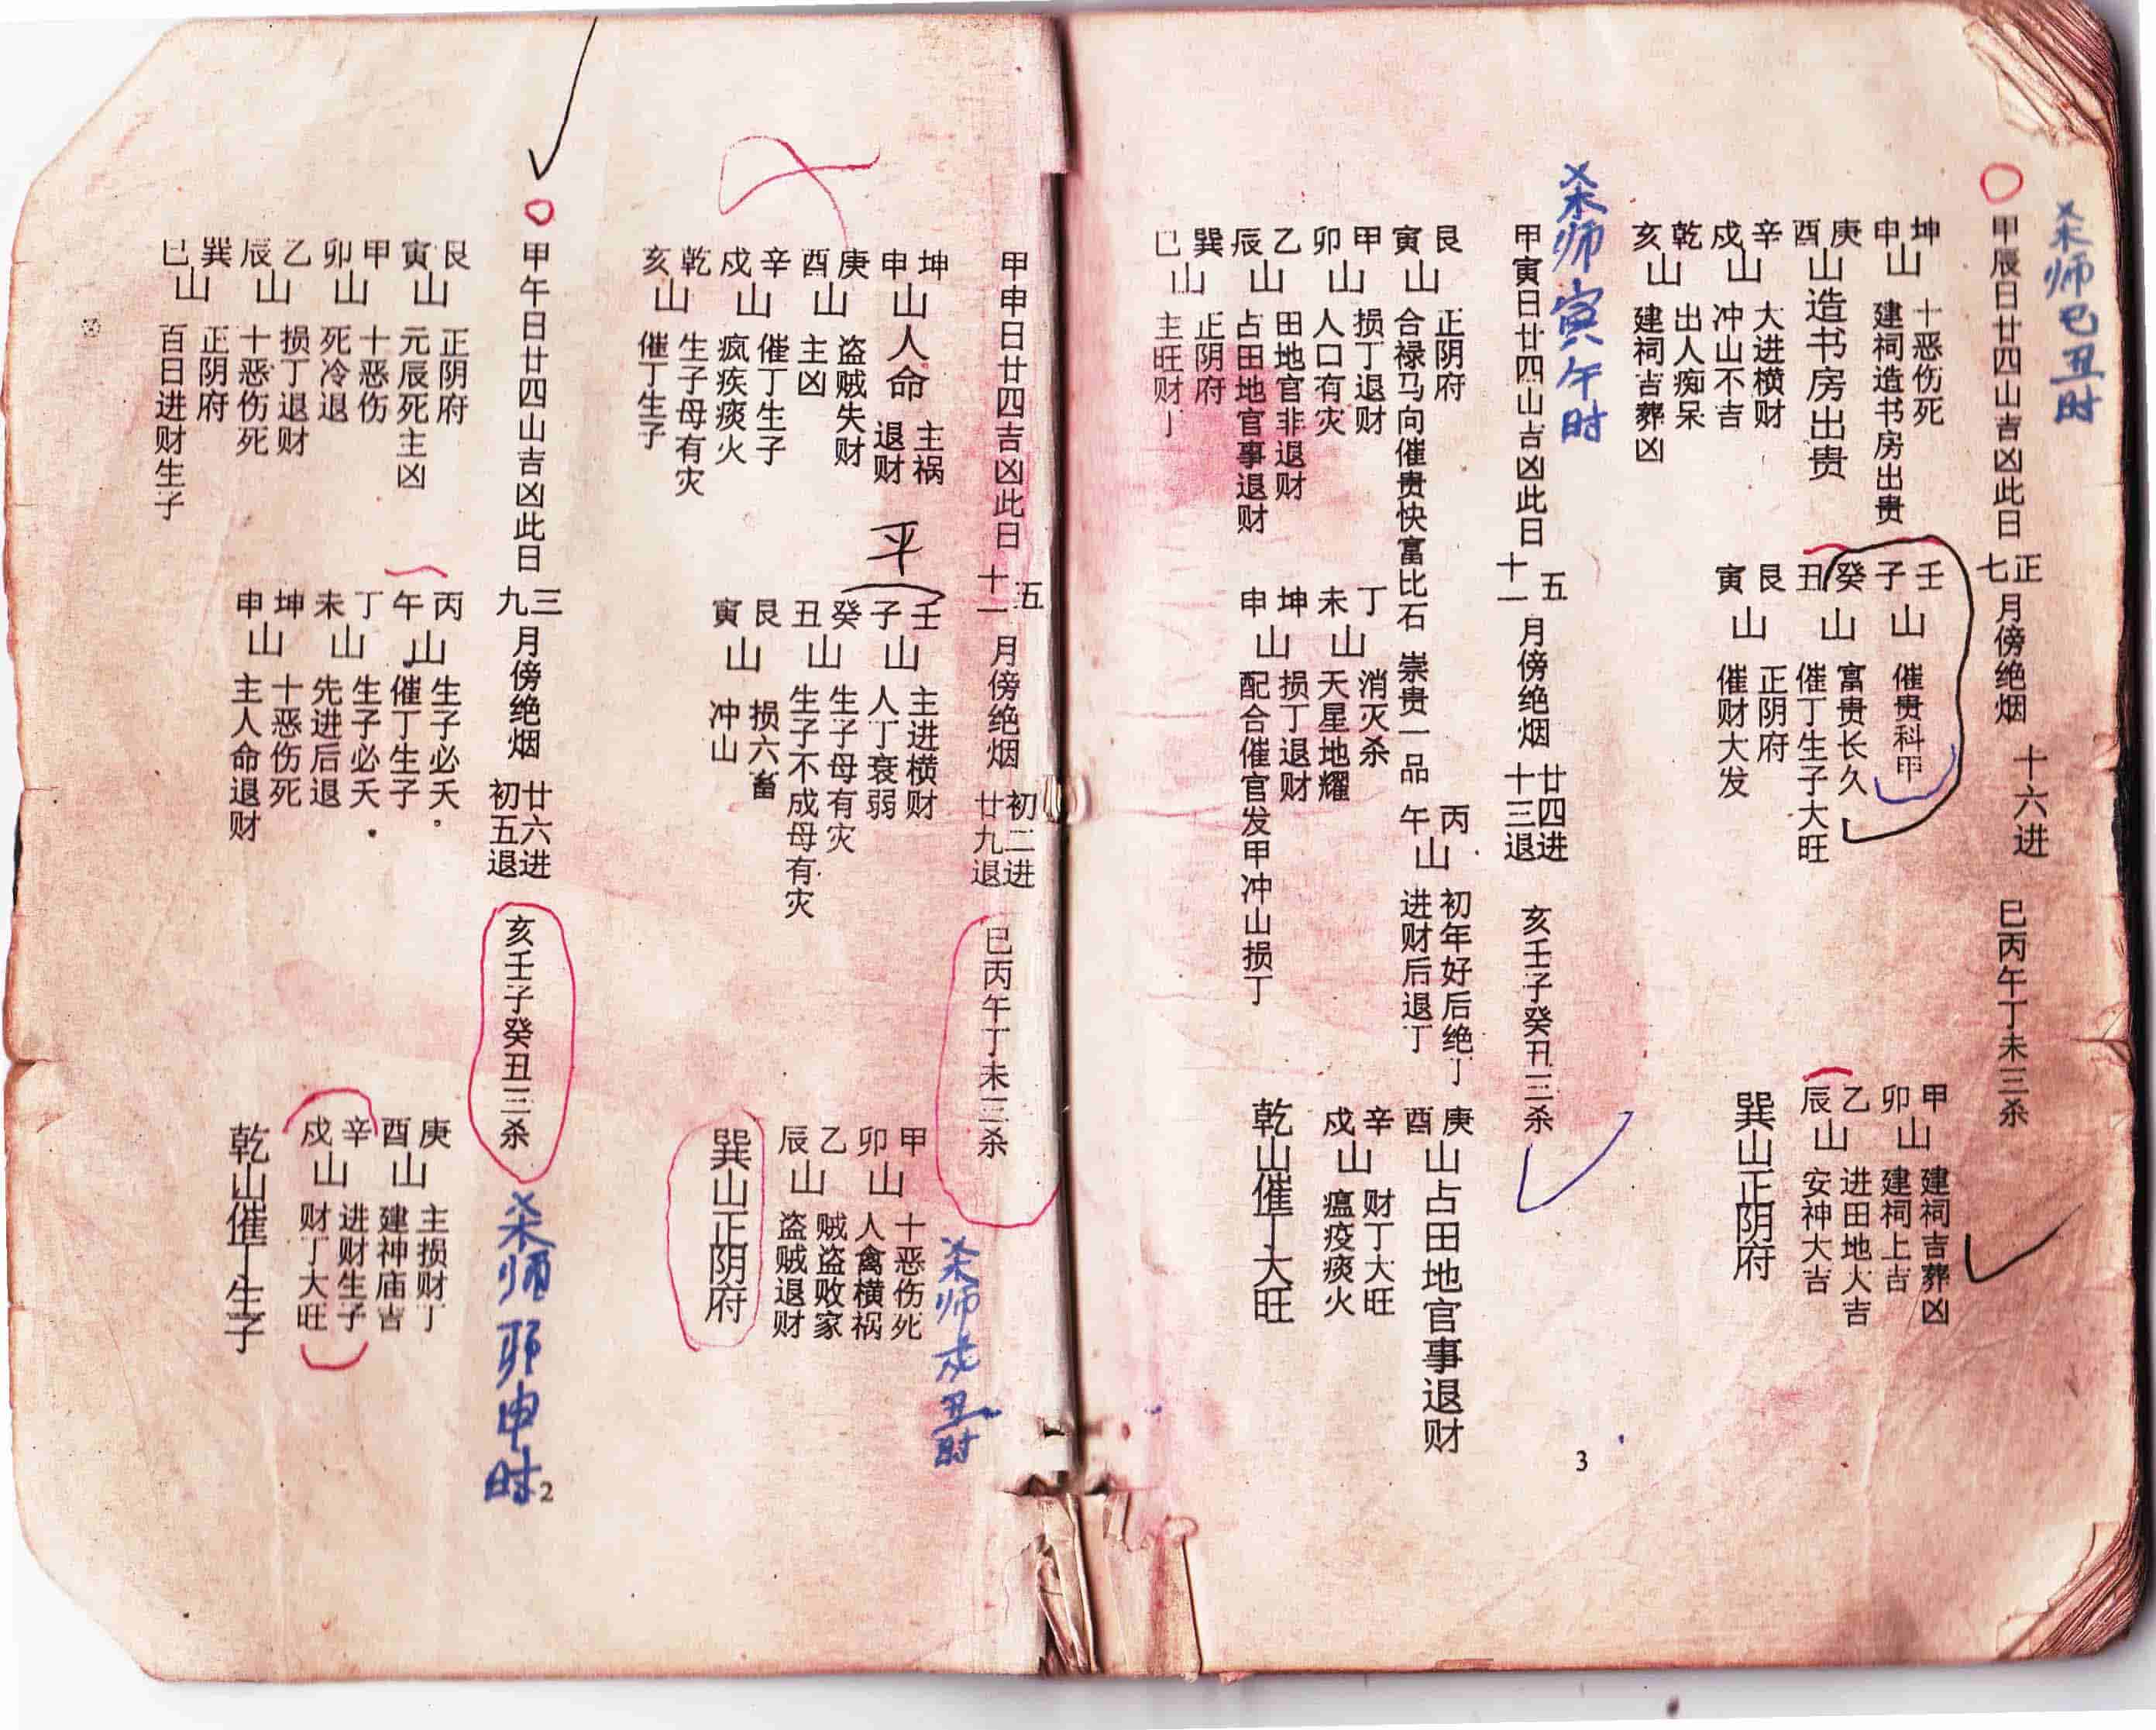 甲申日廿四吉凶此日 五十一 月傍绝烟 初二进 廿九退 巳丙午丁未三杀
杀师戌丑时
坤申山人命 主祸 退财
庚酉山 盗贼失财 主凶
辛戌山 催丁生子 疯疾痰火
乾亥山 生子母有灾 催丁生子
平
壬子山 主进横财 人丁衰弱
癸丑山 生子母有灾 生子不成母有灾
艮寅山 损六畜 冲山
甲卯山 十恶伤死 人禽横祸
乙辰山 贼盗败家 盗贼退财
巽山正阴府
甲午日廿四山吉凶此日 三九 月傍绝烟 廿六进 初五退 亥壬子癸丑三杀
杀师卯申时
艮寅山 正阴府 元辰死主凶
甲卯山 十恶伤 死冷退
乙辰山 损丁退财 十恶伤死
巽巳山 正阴府 百日进财生子
丙午山 生子必夭。 催丁生子
丁未山 生子必夭 先进后退
坤申山 十恶伤死 主人命退财
庚酉山 主损财丁 建神庙吉
辛戌山 进财生子 财丁大旺
乾山催丁生子
2
杀师巳丑时
甲辰日廿四山吉凶此日 正七 月傍绝烟 十六进 巳丙午丁未三杀
坤申山 十恶伤死 建祠造书房出贵
庚酉山造书房出贵
辛戌山 大进横财 冲山不吉
乾亥山 出人痴呆 建祠吉葬凶
壬子山 催贵科甲
癸丑山 富贵长久 催丁生子大旺
艮寅山 正阴府 催财大发
甲卯山 建祠吉葬凶 建祠上吉
乙辰山 进田地大吉 安神大吉
巽山正阴府
杀师寅午时
甲寅日廿四山吉凶此日 五十一 月傍绝烟 廿四进 十三退 亥壬子癸丑三杀
艮寅山 正阴府 合禄马向催贵快富比石崇贵一品
甲卯山 损丁退财 人口有灾
乙辰山 田地官非退财 占田地官事退财
巽巳山 正阴府 主旺财丁
丙午山 初年好后绝丁 进财后退丁
丁未山 消灭杀 天星地耀
坤申山 损丁退财 配合催官发甲冲山损丁
庚酉山占田地官事退财
辛戌山 财丁大旺 瘟疫痰火
乾山催丁大旺
3